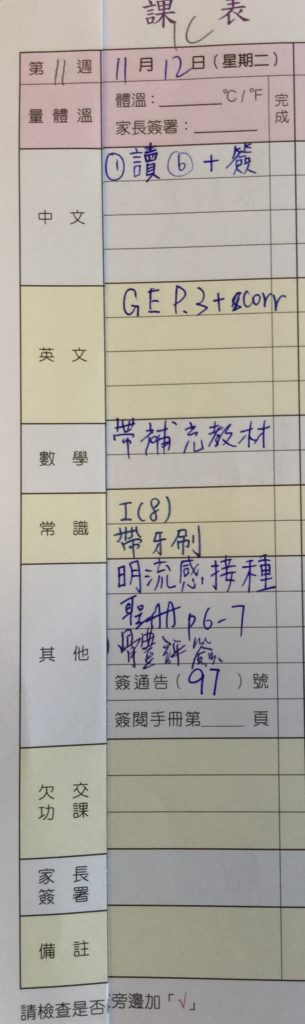 課表
1C
第11週 11月12日(星期二)
量體溫 體溫：______°C/°F 完成
家長簽署：______
中文 ①讀⑥+簽
英文 GE P.3+corr
數學 帶補充教材
常識 I(8)
帶牙刷
其他 明流感接種
p6-7
體評簽
簽通告(97)號
簽閱手冊第____頁
欠交功課
家長簽署
備註
請檢查是否
旁邊加「√」